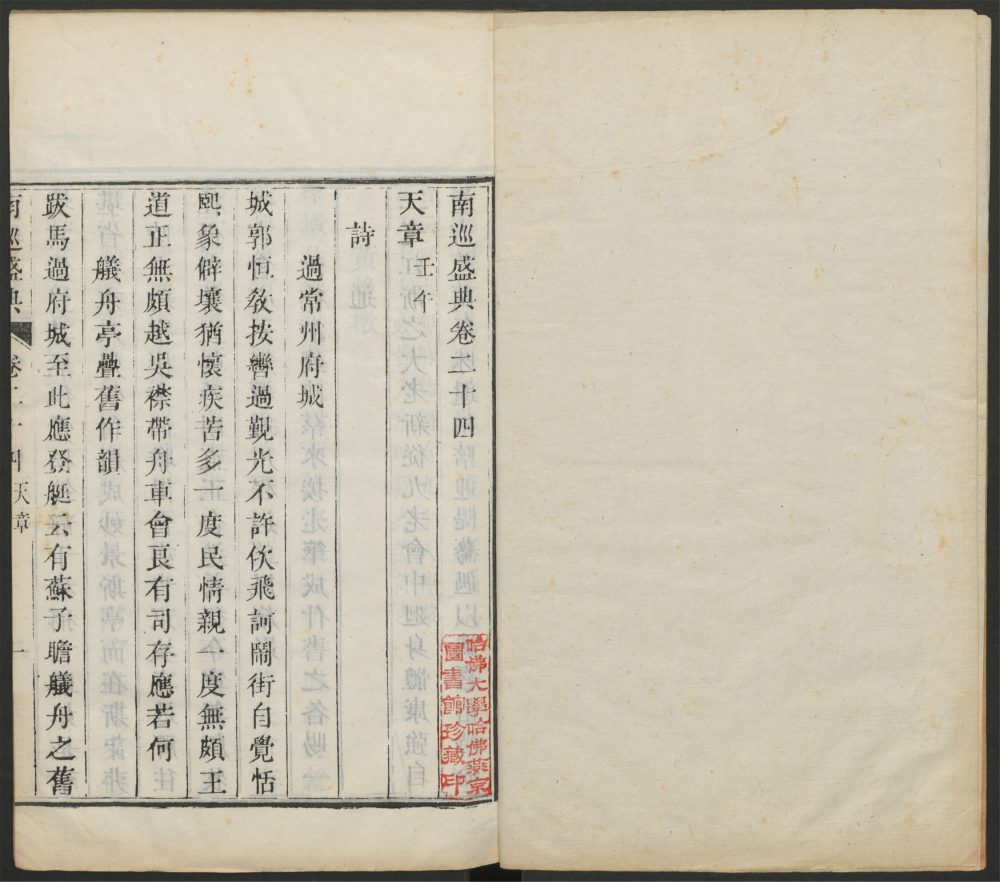 南巡盛典卷二十四
天章壬午
詩
過常州府城
城郭恒敎按轡過覲光不許佽飛訶鬧街自覺恬
熙象僻壤猶懷疾苦多一度民情親一度無頗王
道正無頗越吳襟帶舟車會㠯有司存應若何
艤舟亭疊舊作韻
跋馬過府城至此應登艇云有蘇子瞻艤舟之舊
南巡盛典 卷二十四 天章 一
哈佛大學哈佛燕京
圖書館珍藏印